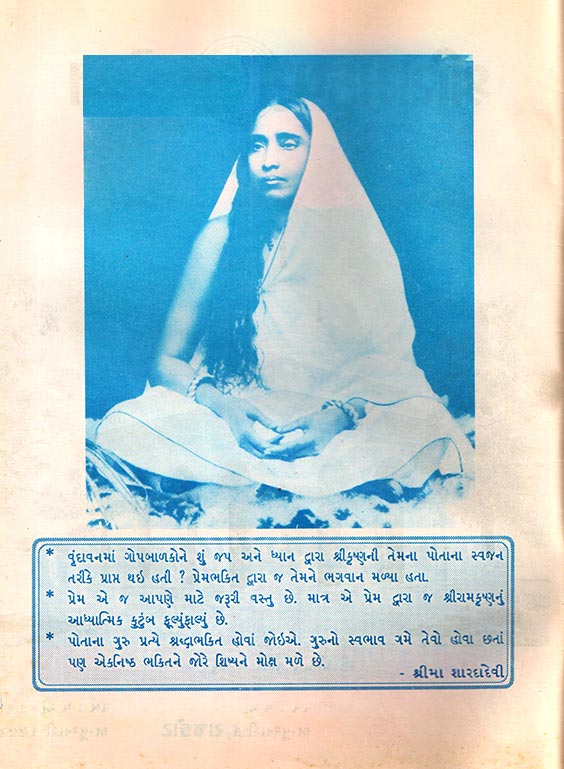 * વૃંદાવનમાં ગોપબાળકોને શું જપ અને ધ્યાન દ્વારા શ્રીકૃષ્ણની તેમના પોતાના સ્વજન
તરીકે પ્રાપ્ત થઇ હતી ? પ્રેમભકિત દ્વારા જ તેમને ભગવાન મળ્યા હતા.
* પ્રેમ એ જ આપણે માટે જરૂરી વસ્તુ છે. માત્ર એ પ્રેમ દ્વારા જ શ્રીરામકૃષ્ણનું
આધ્યાત્મિક કુટુંબ ફૂલ્યુંફાલ્યું છે.
* પોતાના ગુરુ પ્રત્યે શ્રદ્ધાભકિત હોવાં જોઇએ. ગુરુનો સ્વભાવ ગમે તેવો હોવા છતાં
પણ એકનિષ્ઠ ભકિતને જોરે શિષ્યને મોક્ષ મળે છે.
- શ્રીમા શારદાદેવી